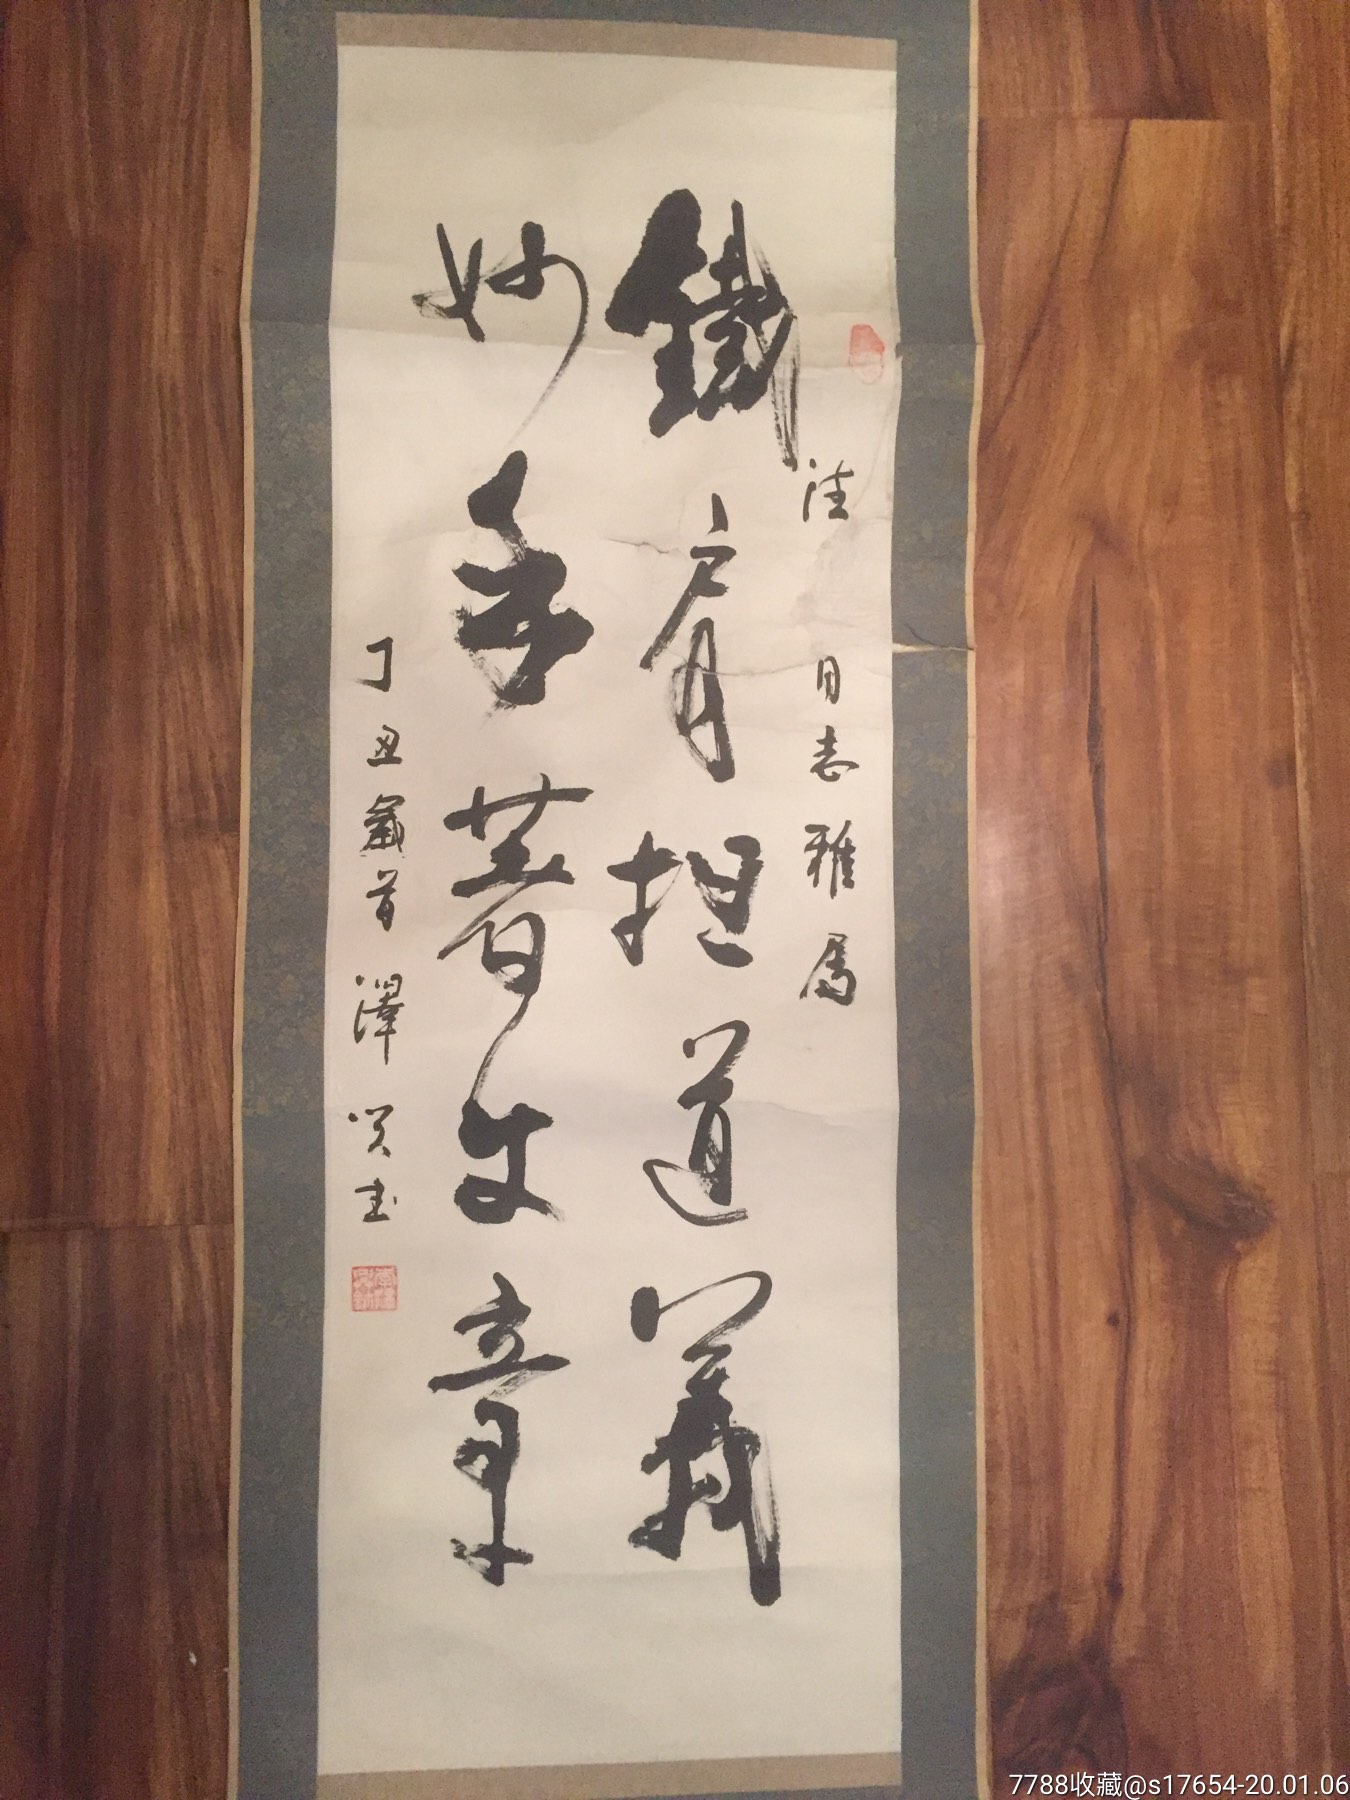 同志雅属
鐵肩担道義
妙手著文章
丁丑歲首澤书
7788收藏@s17654-20.01.06